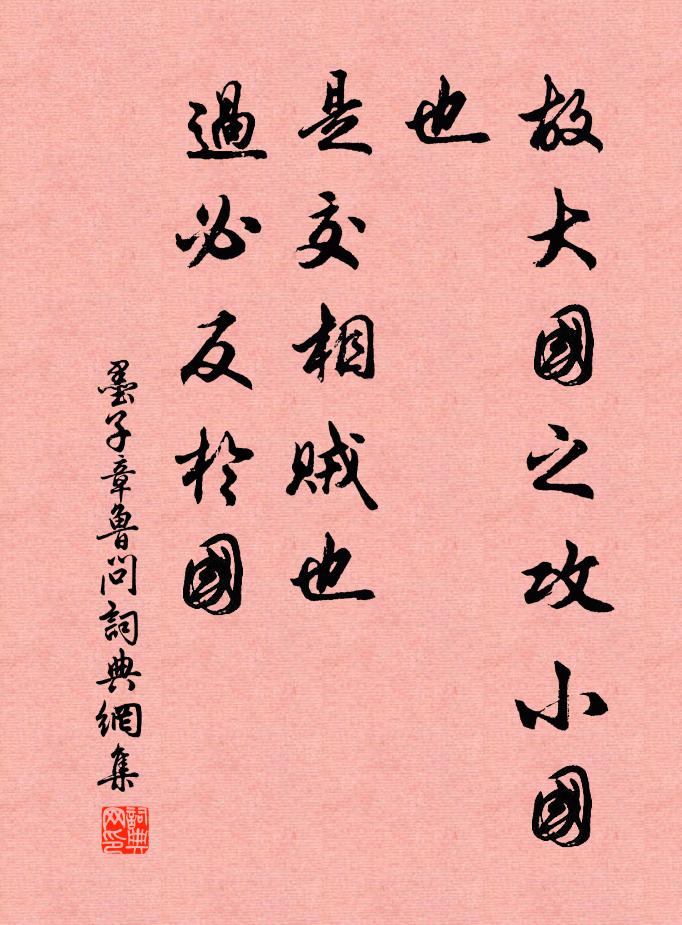 故大國之攻小國
也
是交相賊也
過必反於國
墨子章魯問詞典網集
詞典
网印